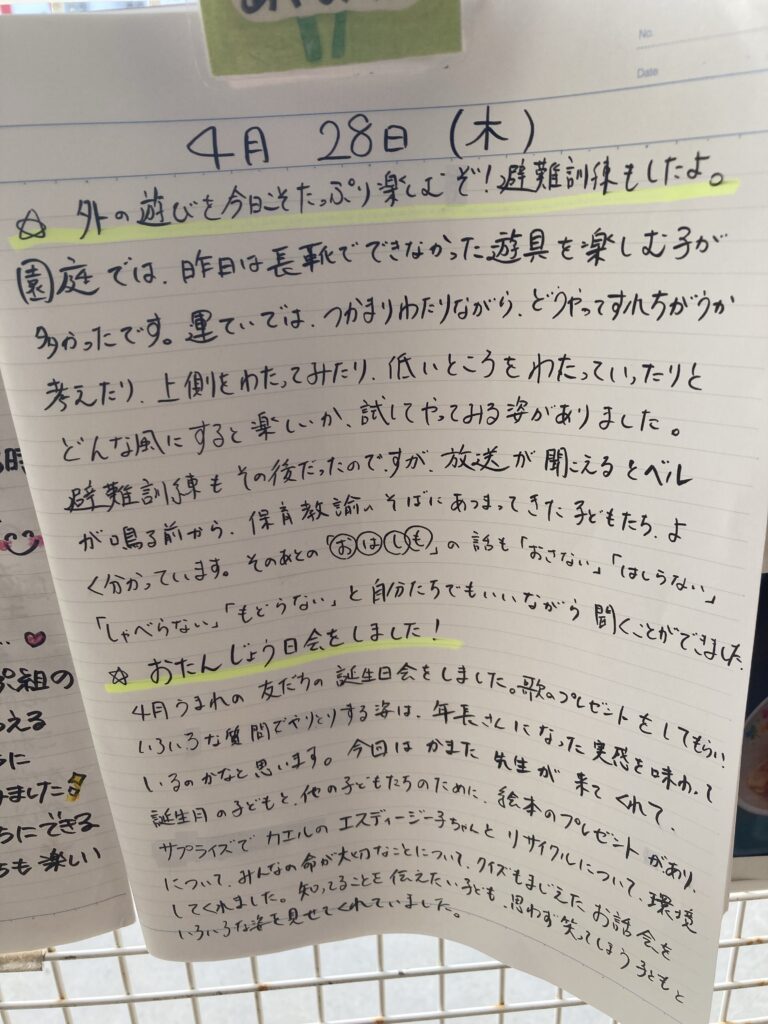 No.
Date
4月 28日 (木)
☆ 外の遊びを今日こそたっぷり楽しむぞ！避難訓練もしたよ。
園庭では、昨日は長靴でできなかった遊具を楽しむ子が
多かったです。運ていでは、つかまりわたりながら、どうやってすれちがうか
考えたり、上側をわたってみたり、低いところをわたっていったりと
どんな風にすると楽しいか、試してやってみる姿がありました。
避難訓練もその後だったのですが、放送が聞こえるとベル
が鳴る前から、保育教諭のそばにあつまってきた子どもたち、よ
く分かっています。そのあとの「おはしも」の話も「おさない」「はしらない」
「しゃべらない」「もどらない」と自分たちでもいいながら聞くことができました。
☆ おたんじょう日会をしました！
4月うまれの友だちの誕生日会をしました。歌のプレゼントをしてもらい
いろいろな質問でやりとりする姿は、年長さんになった実感を味わって
いるのかなと思います。今回はかまた先生が来てくれて、
誕生月の子どもと、他の子どもたちのために、絵本のプレゼントがあり、
サプライズでカエルのエスディージー子ちゃんとリサイクルについて、環境
について、みんなの命が大切なことについて、クイズもまじえたお話会を
してくれました。知ってることを伝えたい子ども、思わず笑ってしまう子どもと
いろいろな姿を見せてくれていました。
時
組の
える
に
みました
ちにできる
ちも楽しい